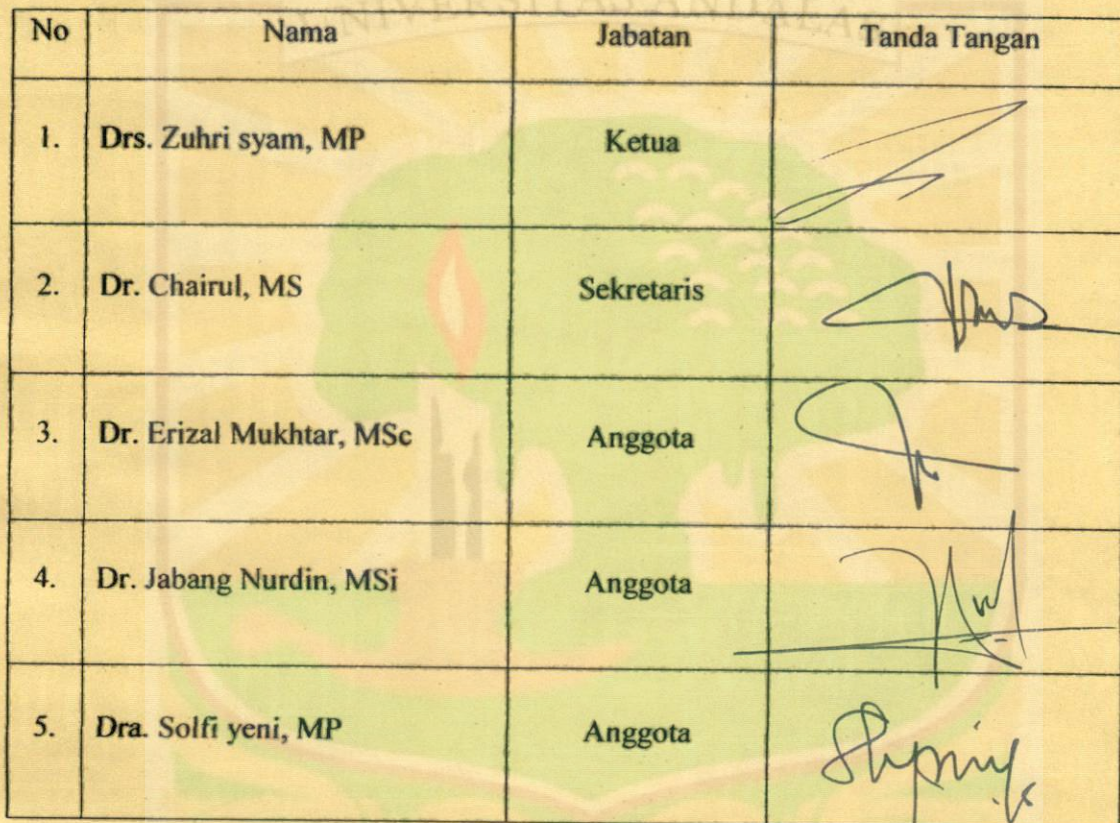 UNIVERSITAS ANDALAS
No Nama Jabatan Tanda Tangan
1. Drs. Zuhri syam, MP Ketua
2. Dr. Chairul, MS Sekretaris
3. Dr. Erizal Mukhtar, MSc Anggota
4. Dr. Jabang Nurdin, MSi Anggota
5. Dra. Solfi yeni, MP Anggota